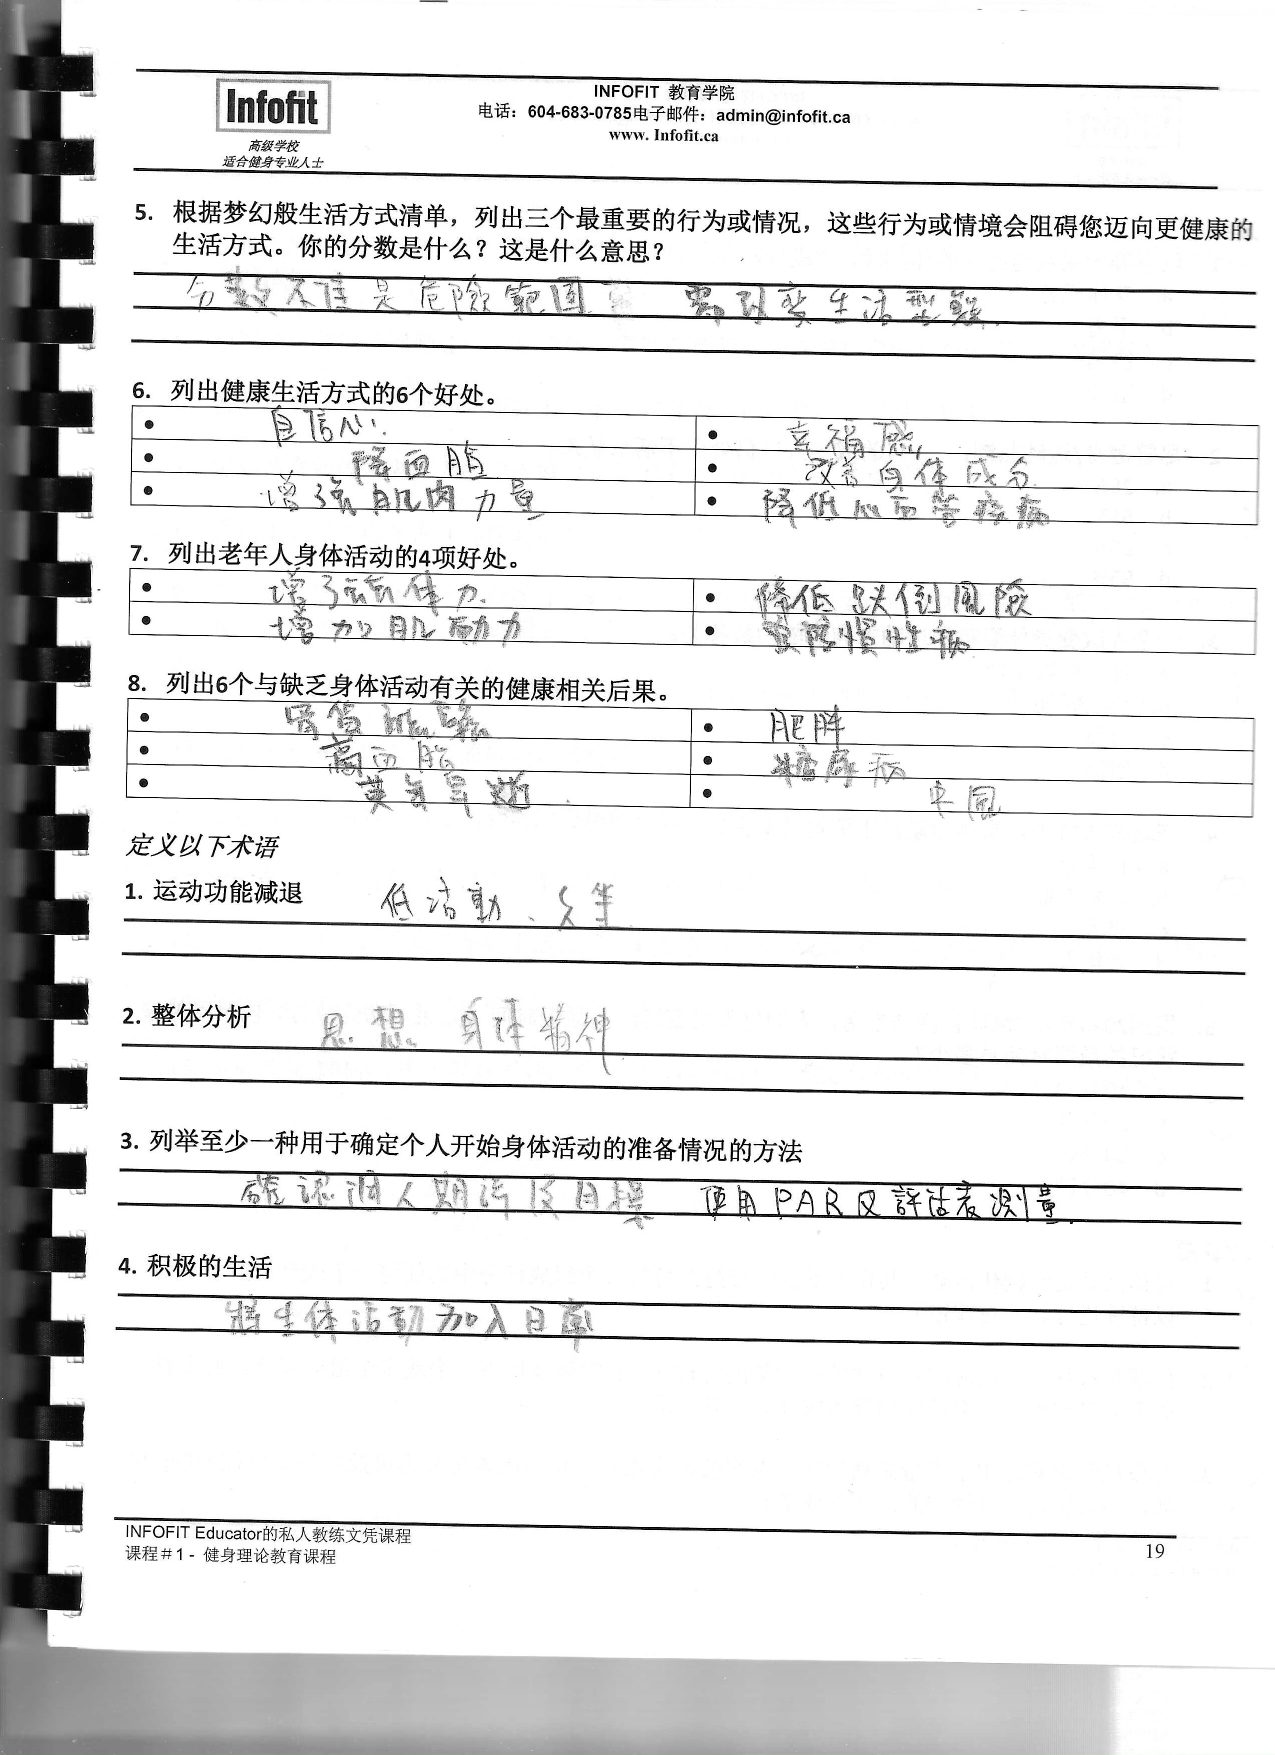 Infofit
高级学校
适合健身专业人士
INFOFIT 教育学院
电话：604-683-0785电子邮件：admin@infofit.ca
www. Infofit.ca
5. 根据梦幻般生活方式清单，列出三个最重要的行为或情况，这些行为或情境会阻碍您迈向更健康的
生活方式。你的分数是什么？这是什么意思？
分數不佳是危險範圍 需改變生活型態
6. 列出健康生活方式的6个好处。
• 自信心 • 幸福感
• 降血脂 • 改善身体成分
• 增强肌肉力量 • 降低心血管疾病
7. 列出老年人身体活动的4项好处。
• 增强体力 • 降低跌倒風險
• 增加肌耐力 • 慢性病
8. 列出6个与缺乏身体活动有关的健康相关后果。
• 骨質疏鬆 • 肥胖
• 高血脂 • 糖尿病
• 英年早逝 • 中風
定义以下术语
1. 运动功能减退 低活動
2. 整体分析 思想 身体 精神
3. 列举至少一种用于确定个人开始身体活动的准备情况的方法
確認個人期許及目標 使用PAR及評估表測量
4. 积极的生活
將生体活動加入日常
INFOFIT Educator的私人教练文凭课程
课程＃1 - 健身理论教育课程
19